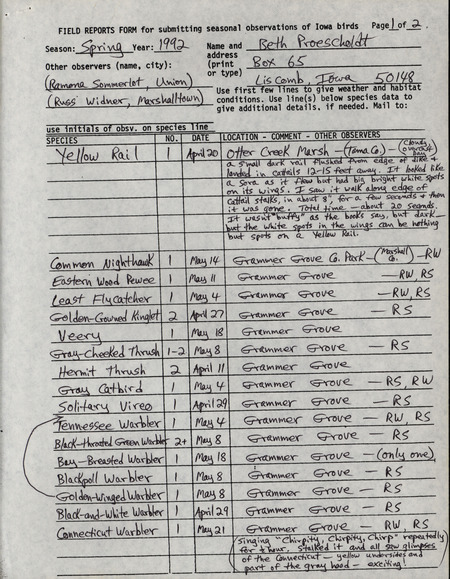 FIELD REPORTS FORM for submitting seasonal observations of Iowa birds Page 1 of 2.
Season: Spring Year: 1992 Name and address (print or type) Beth Proescholdt
Box 65
Liscomb, Iowa 50148
Other observers (name, city):
(Ramona Sommerlot Union)
(Russ Widner, Marshalltown)
Use first few lines to give weather and habitat
conditions. Use line(s) below species data to
give additional details. if needed. Mail to:
use initials of obsv. on species line
SPECIES NO. DATE LOCATION - COMMENT - OTHER OBSERVERS
Yellow Rail 1 April 20 Otter Creek Marsh - (Tama Co.) - (Cloudy overcast day)
a small dark rail flushed from edge of dike +
landed in cattails 12-15 feet away. It looked like
a Sora as it flew but had big bright white spots
on its wings. I saw it walk along edge of
cattail stalks, in about 8", for a few seconds + then
it was gone. Total time - about 20 seconds.
It wasn't "buffy" as the books say, but dark -
but the white spots in the wings can be nothing
but spots on a Yellow Rail.
Common Nighthawk 1 May 14 Grammer Grove Co. Park - (Marshall Co.) - RW
Eastern Wood Pewee 1 May 11 Grammer Grove - RW, RS
Least Flycatcher 1 May 4 Grammer Grove - RW, RS
Golden-Crowned Kinglet 2 April 27 Grammer Grove - RS
Veery 1 May 18 Grammer Grove
Gray-Cheeked Thrush 1-2 May 8 Grammer Grove - RS
Hermit Thrush 2 April 11 Grammer Grove
Gray Catbird 1 May 4 Grammer Grove - RS, RW
Solitary Vireo 1 April 29 Grammer Grove - RS
Tennessee Warbler 1 May 4 Grammer Grove - RW, RS
Black-throated Green Warbler 2+ May 8 Grammer Grove - RS
Bay-Breasted Warbler 1 May 18 Grammer Grove - (only one)
Blackpoll Warbler 1 May 8 Grammer Grove - RS
Golden-Winged Warbler 1 May 8 Grammer Grove - RS
Black-and-White Warbler 1 April 29 Grammer Grove - RS
Connecticut Warbler 1 May 21 Grammer Grove - RW, RS
(singing "Chirpity, Chirpity, Chirp" repeatedly
for hour. Stalked it and all saw glimpses
of the Connecticut - yellow undersides and
part of the gray hood - exciting!